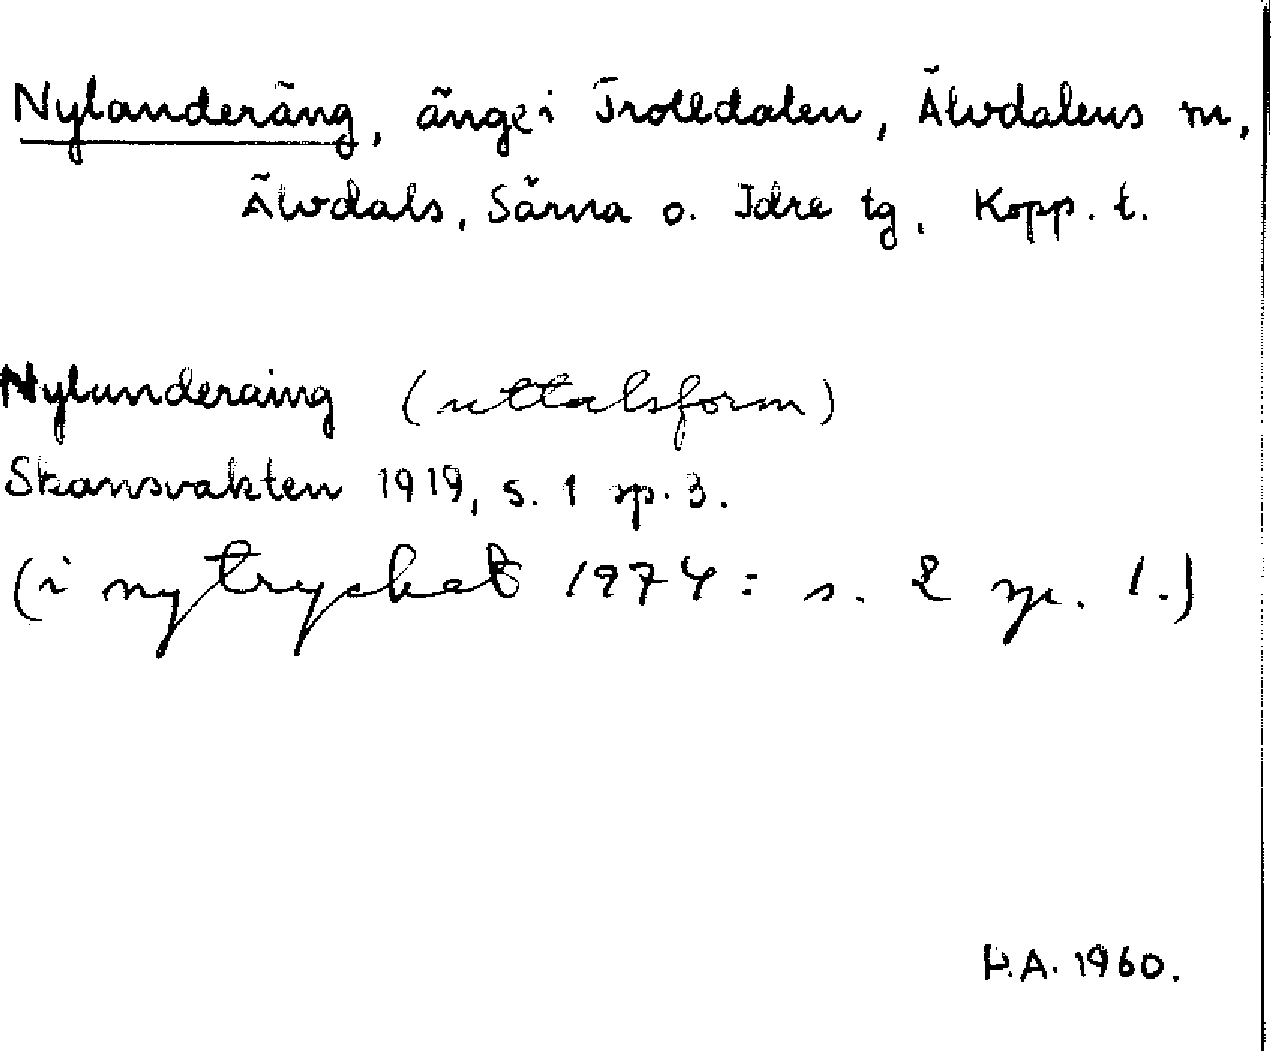 Nylanderäng, änge i Trolldalen, Älvdalens sn,
Älvdals, Särna o. Idre tg, Kopp. l.
Nylanderaing (uttalsform)
Skansvakten 1919, s. 1 sp. 3.
(i nytrycket 1974: s. 2 sp. 1.)
H.A. 1960.